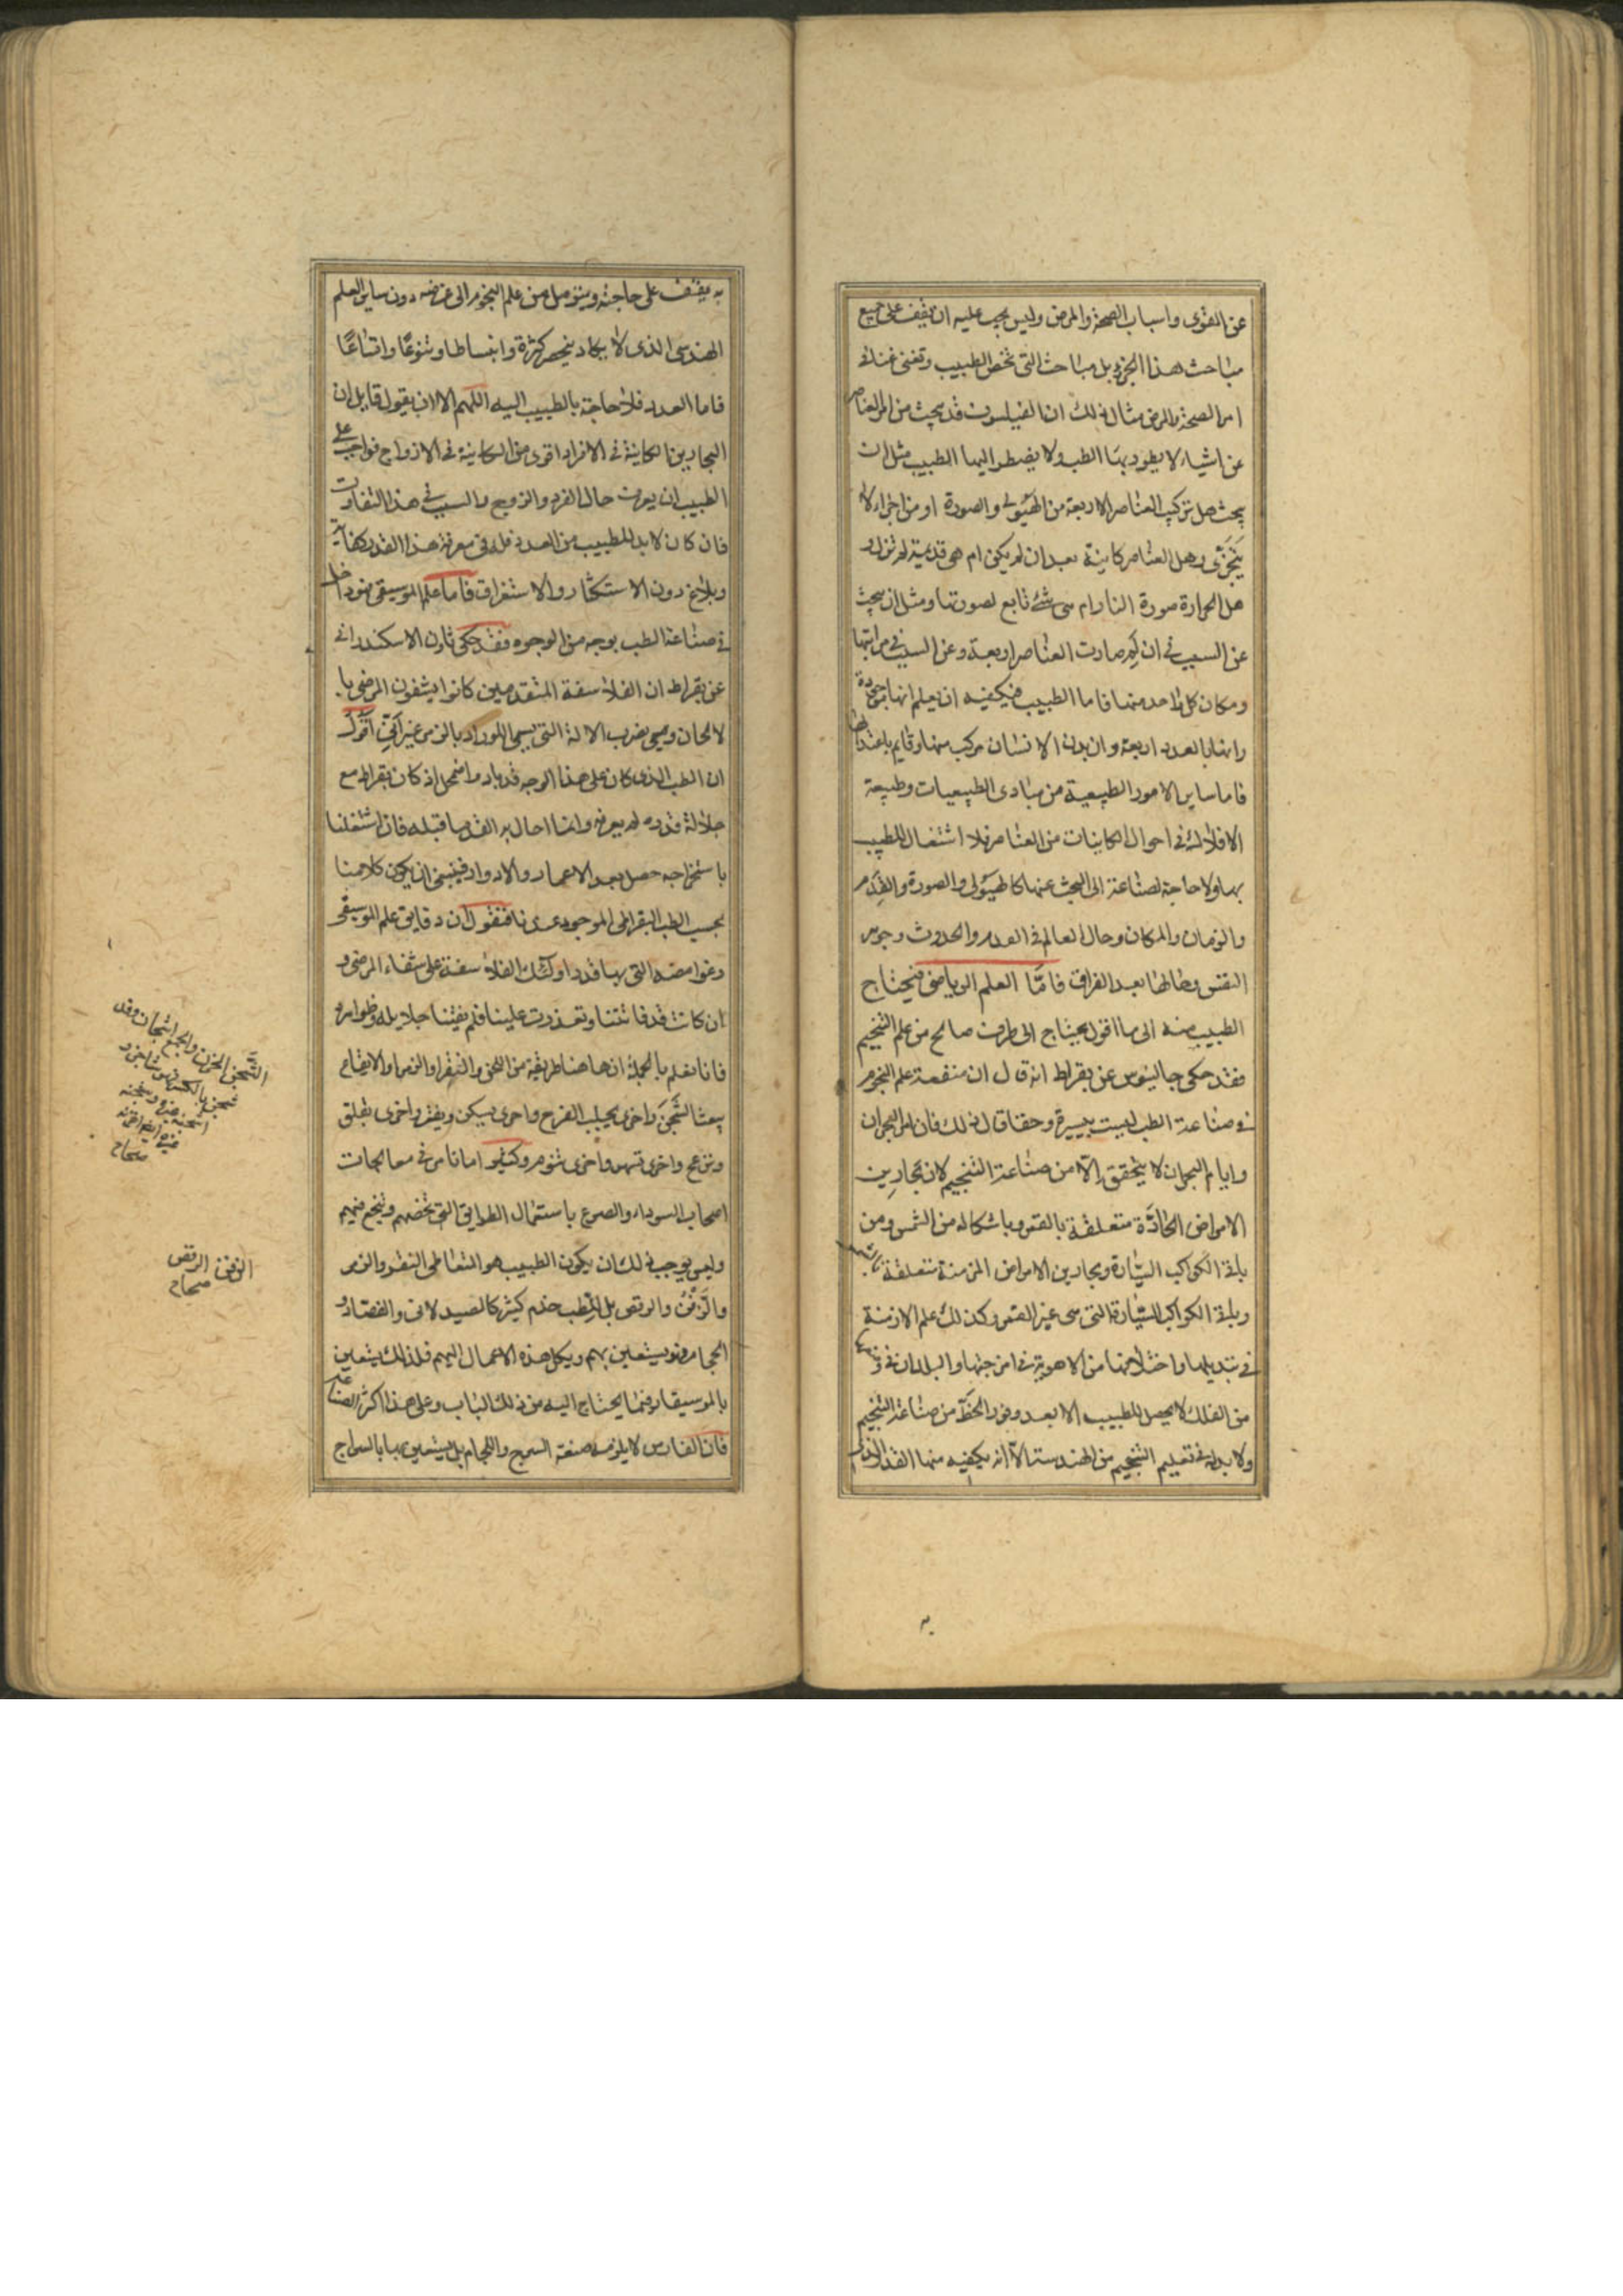 عن القوى واسباب الصحة والمرض وليس يجب عليه ان يقف على جميع
مباحث هذا الجزء بل مباحث التى تخص الطبيب وتغنى غناء فى
امر الصحة والمرض مثال ذلك ان الفيلسوف قد يبحث من امر العناصر
عن اشياء لا يطور بها الطب ولا يضطر اليها الطبيب مثل ان
يبحث هل تركيب العناصر الاربعة من الهيولى والصورة او من اجزاء لا
يتجزى وهل العناصر كاينة بعد ان لم يكن ام هى قديمة لم تزل و
هل الحرارة صورة النار ام هى شئ تابع لصورتها ومثل ان يبحث
عن السبب فى ان لم صارت العناصر اربعة وعن السبب فى مراتبها
ومكان كل واحد منها فاما الطبيب فيكفيه ان يعلم انها موجودة
وانها بالعدد اربعة وان بدن الانسان مركب منها وقايم باعتدالها
فاما ساير الامور الطبيعية من مبادى الطبيعيات وطبيعة
الافلاك فى احوال الكاينات من العناصر فلا اشتغال للطبيب
بها ولا حاجة لصناعته الى البحث عنها كالهيولى والصورة والقدم
والزمان والمكان وحال العالم فى القدم والحدوث وجوهر
النفس وحالها بعد الفراق فامّا العلم الرياضى فيحتاج
الطبيب منه الى ما اقول يحتاج الى طرف صالح من علم التنجيم
فقد حكى جالينوس عن بقراط انه قال ان منفعة علم النجوم
فى صناعة الطب ليست بيسيرة وحقا قال ذلك فان امر البحران
وايام البحران لا يتحقق الّا من صناعة التنجيم لان بحارين
الامراض الحادّة متعلقة بالقمر وباشكاله من الشمس ومن
باقى الكواكب السيّارة وبحارين الامراض المزمنة متعلقة بالشمس
وباقى الكواكب السيّارة التى هى غير القمر وكذلك علم الازمنة
فى تبديلها واختلافها من الاهوية فى امزجتها والبلدان فى
من الفلك لا يحصل للطبيب الا بعد وفور الحظّ من صناعة التنجيم
ولا بد له فى تعليم التنجيم من الهندسة الّا انه يكفيه منها القدر الذى
به يقف على حاجته ويتوصل من علم النجوم الى غرضه دون ساير العلم
الهندسى الذى لا يكاد ينحصر كثرة وانبساطا وتنوعًا واتساعًا
فاما العدد فلا حاجة بالطبيب اليه اللهم الا ان يقول قايل ان
البحارين الكاينة فى الافراد اقوى من الكاينة فى الازواج فواجب على
الطبيب ان يعرف حال الفرد والزوج والسبب فى هذا التفاوت
فان كان لا بد للطبيب من العدد فله فى معرفة هذا القدر كفاية
وبلاغ دون الاستكثار والاستغراق فاما علم الموسيقى فهو داخل
فى صناعة الطب بوجه من الوجوه فقد حكى ثاون الاسكندرانى
عن بقراط ان الفلاسفة المتقدمين كانوا يشفون المرضى با
لالحان وهى بضرب الالة التى يسمى اللورا وبالزمر غير انّى اقول
ان الطب الذى كان على هذا الوجه قد باد واضمحل اذ كان بقراط مع
جلالة قدره لم يعرفه وانما احال به الى قدما قبله فان اشتغلنا
باستخراجه حصل بعد الاعمار والادوار فينبغى ان يكون كلامنا
بحسب الطب البقراطى الموجود عندنا فنقول ان دقايق علم الموسيقى
وغوامضه التى بها قدر اولئك الفلاسفة على شفاء المرضى و
ان كانت قد فاتتنا وتعذرت علينا فلم يفتنا جلايله وظواهره
فانا نعلم بالجملة ان هاهنا طريقة من اللحن والنقر والزمر والايقاع
يبعث الشَّجَن واخرى يجلب الفرح واخرى يسكن ويفتر واخرى يقلق
ويزعج واخرى تسهر واخرى تنوم وكثيرا ما نامر فى معالجات
اصحاب السوداء والصرع باستعمال الطرايق التى تخصهم وينجع فيهم
وليس يوجب ذلك ان يكون الطبيب هو المتعاطى النقر والزمر
والزَّفْن والرقص بل للطب خدم كثير كالصيدلانى والفصّاد و
الحجام فهو يستعين بهم ويكل هذه الاعمال اليهم فلذلك يستعين
بالموسيقار فيما يحتاج اليه من ذلك الباب وعلى هذا اكثر الصناعات
فان الفارس لا يلزمه صنعة السرج واللجام بل يستعين بها بالسراج
الشَّجَن الحزن والجمع اشجان وقد
شجن بالكسر فهو شاجن و
اشجنه غيره وشجنه
صحاح
الزفن الرقص
صحاح